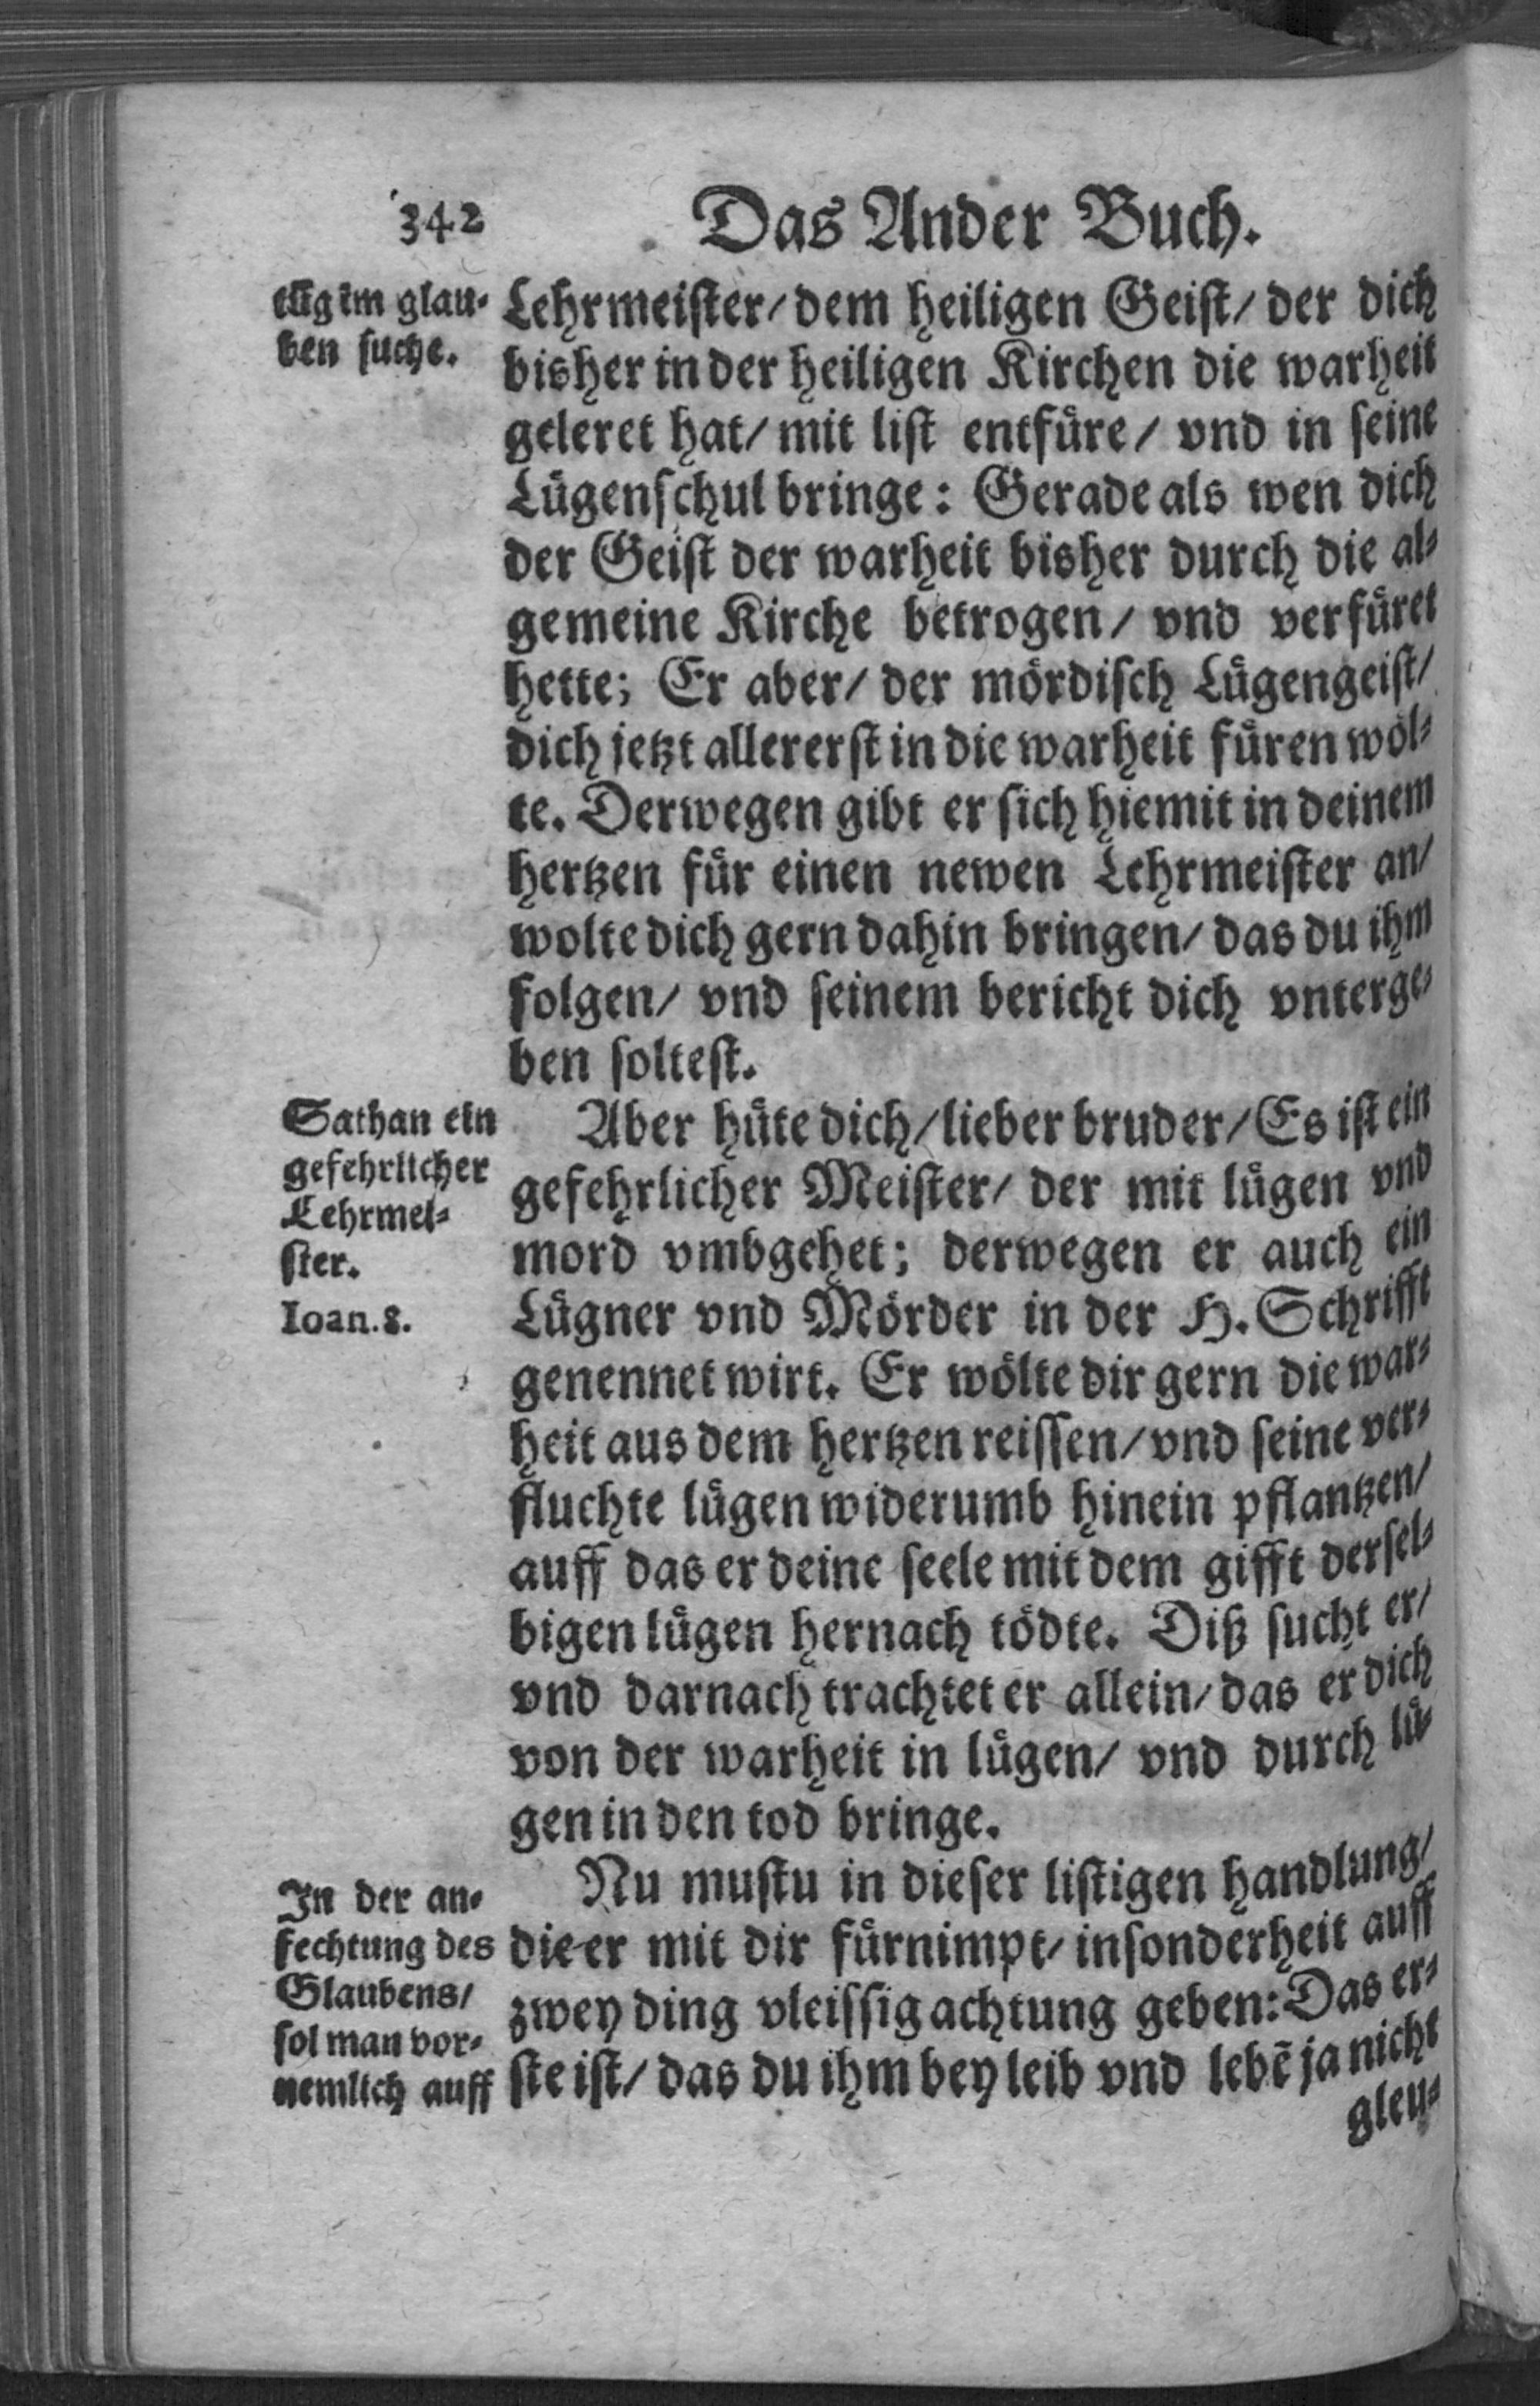 342
Das Ander Buch.
tũg im glau-
ben suche.
Lehrmeister/ dem heiligen Geist/ der dich
bisher in der heiligen Kirchen die warheit
geleret hat/ mit list entfüre/ vnd in seine
Lügenschul bringe: Gerade als wen dich
der Geist der warheit bisher durch die al-
gemeine Kirche betrogen/ vnd verfüret
hette; Er aber/ der mördisch Lügengeist/
dich jetzt allererst in die warheit füren wöl-
te. Derwegen gibt er sich hiemit in deinem
hertzen für einen newen Lehrmeister an/
wolte dich gern dahin bringen/ das du ihm
folgen/ vnd seinem bericht dich vnterge-
ben soltest.
Sathan ein
gefehrlicher
Lehrmei-
ster.
Ioan.8.
Aber hüte dich/ lieber bruder/ Es ist ein
gefehrlicher Meister/ der mit lügen vnd
mord vmbgehet; derwegen er auch ein
Lügner vnd Mörder in der H. Schrifft
genennet wirt. Er wölte dir gern die war-
heit aus dem hertzen reissen/ vnd seine ver-
fluchte lügen widerumb hinein pflantzen/
auff das er deine seele mit dem gifft dersel-
bigen lügen hernach tödte. Diß sucht er/
vnd darnach trachtet er allein/ das er dich
von der warheit in lügen/ vnd durch lü-
gen in den tod bringe.
In der an-
fechtung des
Glaubens/
sol man vor-
nemlich auff
Nu mustu in dieser listigen handlung/
die er mit dir fürnimpt/ insonderheit auff
zwey ding vleissig achtung geben: Das er-
ste ist/ das du ihm bey leib vnd lebẽ ja nicht
gleu-